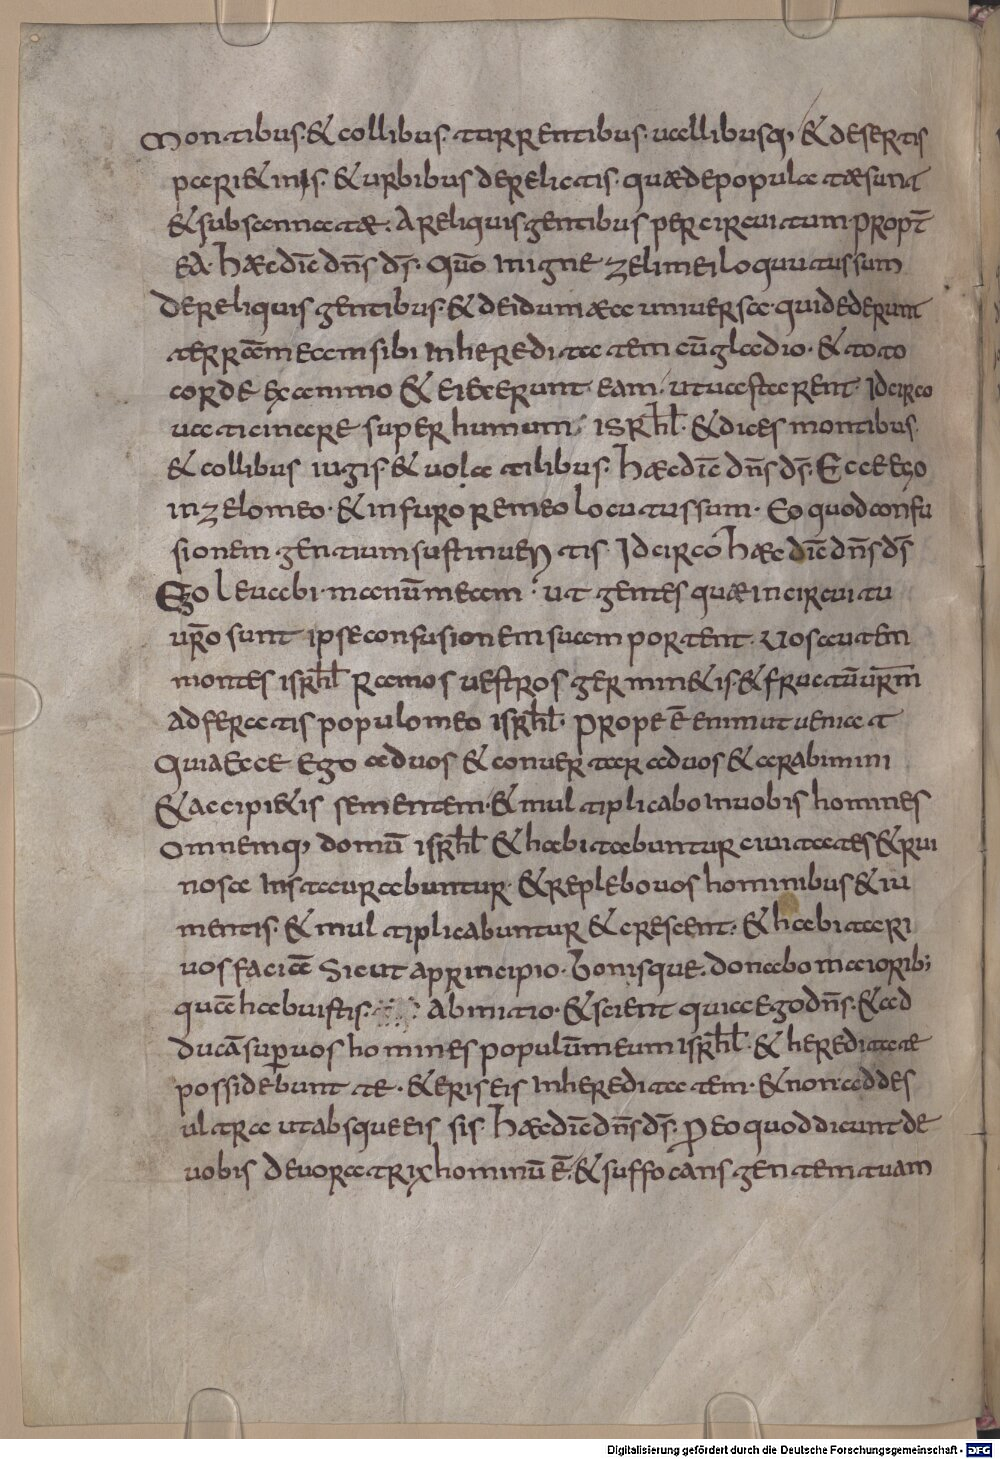 Montibus · & collibus · torrentibus · uallibusq; & desertis
pari&inis · & urbibus derelictis · quae depopulatae sunt
& subsannatae · A reliquis gentibus per circuitum · Propt̄
ea · Haec dic̄ dn̄s ds̄ · Qm̄ in igne zeli mei loquutus sum
De reliquis gentibus · & de idumaea uniuersa · qui dederunt
terrā meam sibi in hereditatem cū gladio · & toto
corde & ex animo & eiecerunt eam · ut uastarent Idcirco
uaticinare super humum · isrl̄ · & dices montibus
& collibus iugis · & uolatilibus · Haec dic̄ dn̄s ds̄ · Ecce ego
in zelo meo · & in furore meo locutus sum · Eo quod confu
sionem gentium sustinueritis · Idcirco Haec dic̄ dn̄s ds̄
Ego leuabi · manū meam · ut gentes quae in circuitu
ur̄o sunt ipse confusionem suam portent · Uos autem
montes isrl̄ ramos uestros germin&is & fructū urm̄
adferatis populo meo isrl̄ · Prope ē enim ut ueniat
Quia ecce ego ad uos & conuertar ad uos & arabimini
& accipi&is sementem · & multiplicabo in uobis homines
Omnemq; domū isrl̄ & habitabuntur ciuitates & rui
nosa instaurabuntur · & replebo uos hominibus & iu
mentis · & multiplicabuntur & crescent · & habitari
uos faciā Sicut a principio · Bonisque · donabo maiorib;
quā habuistis · Ab initio · & scient quia ego dn̄s · & ad
ducā sup̄ uos homines populū meum isrl̄ · & hereditate
possidebunt te · & eris eis in hereditatem · & non addes
ultra ut absque eis sis Haec dic̄ dn̄s ds̄ · P̱ eo quod dicunt de
uobis deuoratrix hominū ē · & suffocans gentem tuam
Digitalisierung gefördert durch die Deutsche Forschungsgemeinschaft - DFG